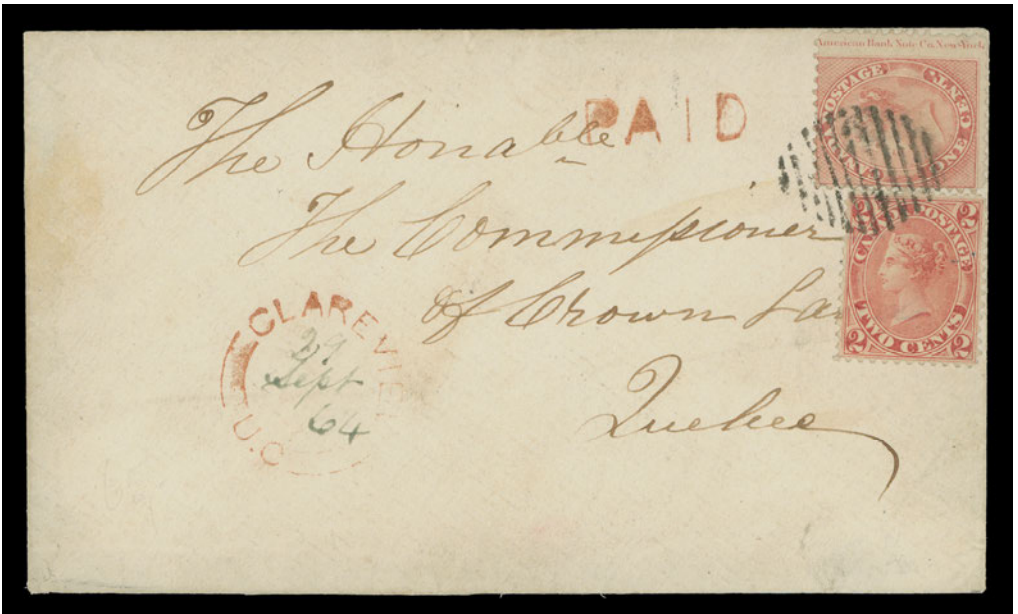 American Bank Note Co. New-York
CANADA POSTAGE
ONE CENT
PAID
The Honable
The Commissioner
of Crown La
Quebec
2 2
CANADA POSTAGE
TWO CENTS
2 2
CLAREVIE
29
Sept
64
U.C